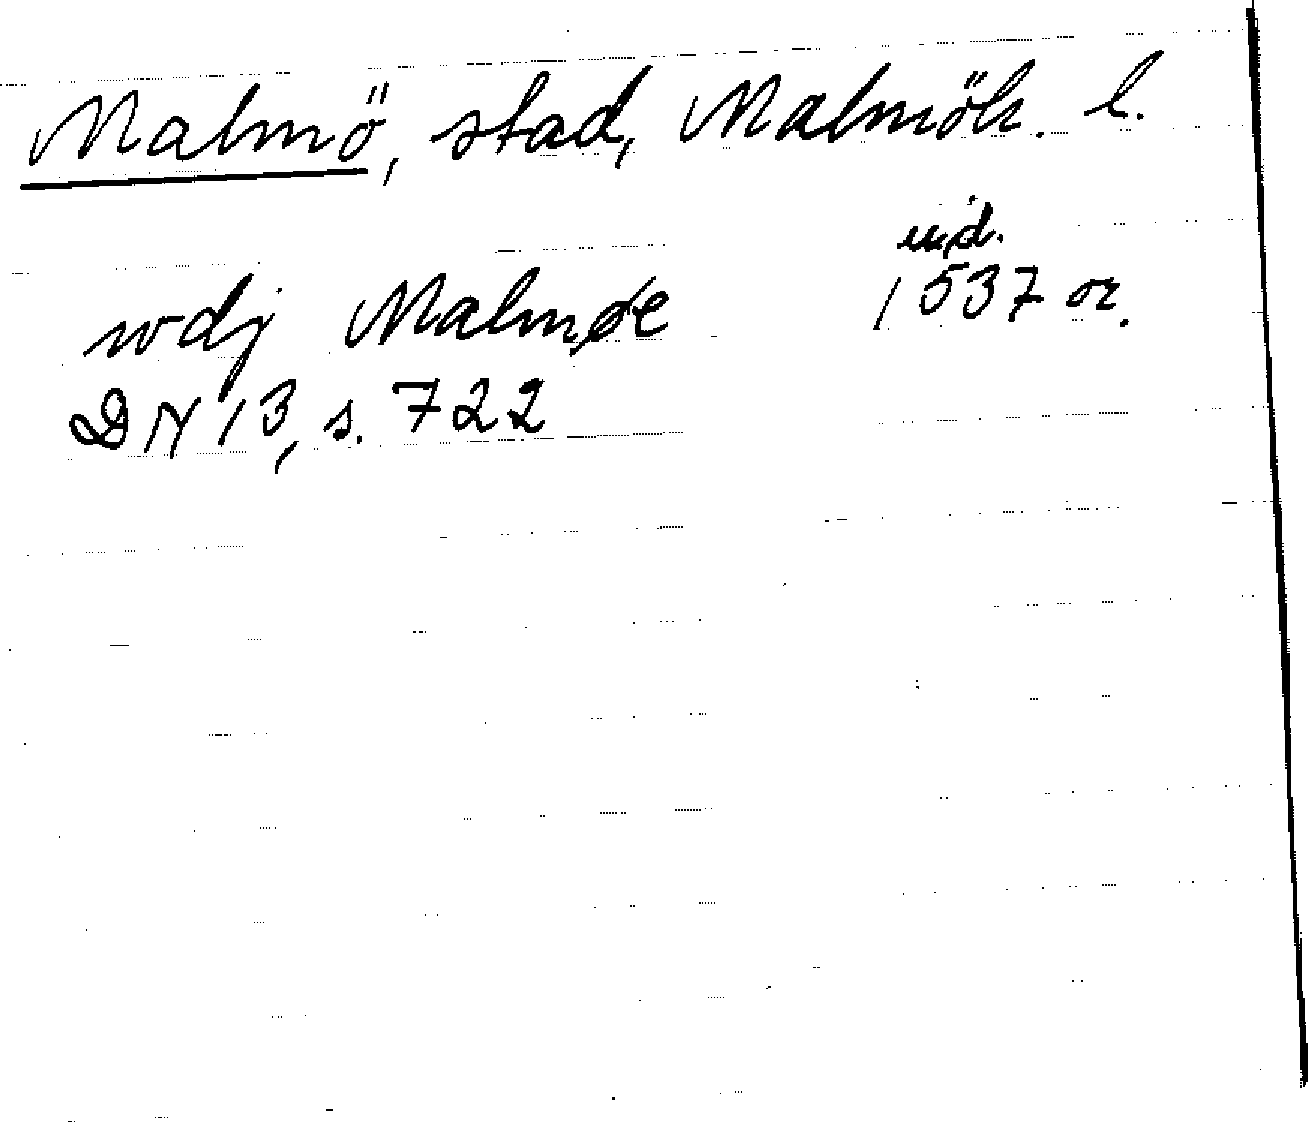 Malmö, stad, Malmöh. l.
uid.
wdj Malmøe 1537 or.
DN 13, s. 722